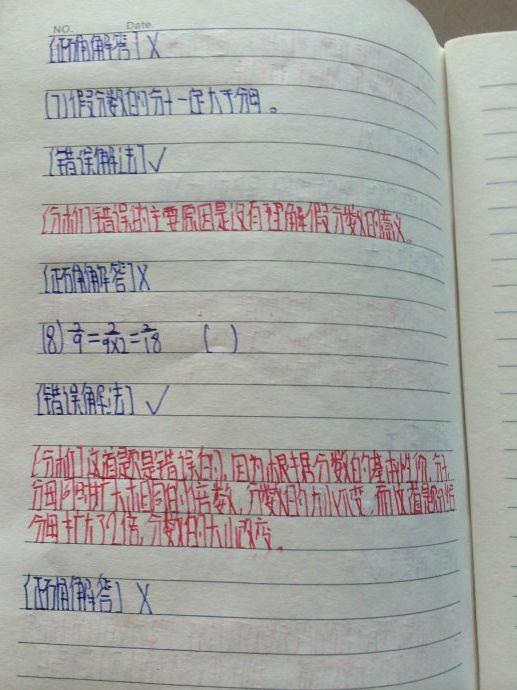 NO.
Date.
[正确解答] X
(7)假分数的分子一定大于分母。
[错误解法] ✓
[分析]错误的主要原因是没有理解假分数的意义。
[正确解答] X
(8) 2/9 = 2/9×2 = 2/18 ( )
[错误解法] ✓
[分析]这道题是错误的,因为根据分数的基本性质,分子、
分母同时扩大相同的倍数,分数的大小不变,而这道题只给
分母扩大了2倍,分数的大小改变。
[正确解答] X